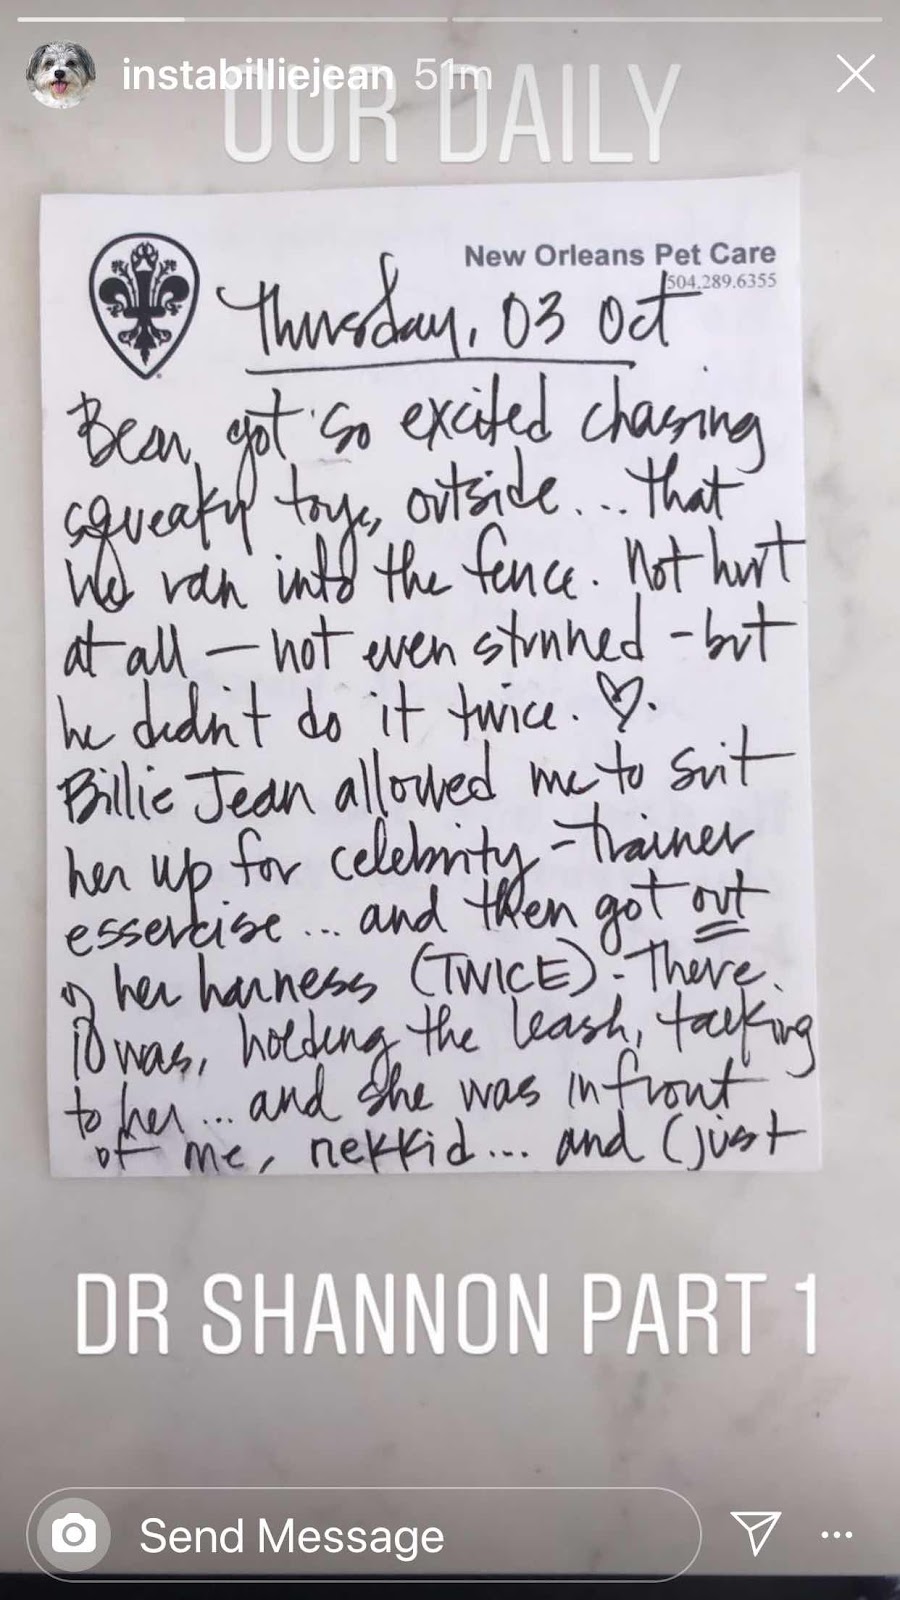 instabilliejean 51m
OUR DAILY
New Orleans Pet Care
504.289.6355
Thursday, 03 Oct
Bear got so excited chasing
squeaky toys, outside... that
he ran into the fence. Not hurt
at all – not even stunned – but
he didn't do it twice. ♡.
Billie Jean allowed me to suit
her up for celebrity-trainer
essercise... and then got out
of her harness (TWICE). There
I was, holding the leash, talking
to her... and she was in front
of me, nekkid... and (just
DR SHANNON PART 1
Send Message